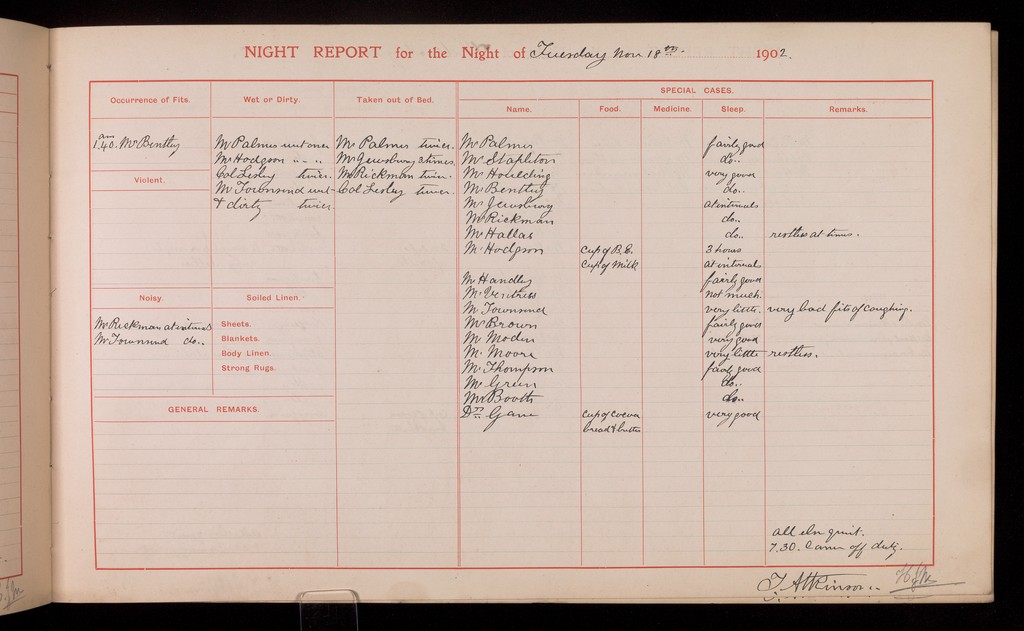 NIGHT REPORT for the Night of Tuesday Nov 18th 1902.
Occurrence of Fits.
Wet or Dirty.
Taken out of Bed.
SPECIAL CASES.
Name.
Food.
Medicine.
Sleep.
Remarks.
am
1.40. Mr Bentley
Violent.
Noisy.
Mr Rickman at intervals
Mr Townsend do..
Mr Palmer wet once
Mr Hodgson " "
Col Lesley twice.
Mr Townsend wet
& dirty twice.
Soiled Linen.
Sheets.
Blankets.
Body Linen.
Strong Rugs.
GENERAL REMARKS.
Mr Palmer twice.
Mr Jewsbury 3 times.
Mr Rickman twice.
Col Lesley twice.
Mr Palmer fairly good
Mr Stapleton do..
Mr very good
Mr Bentley do..
Mr Jewsbury at intervals
Mr Rickman do..
Mr Hallas do.. restless at times.
Mr Hodgson Cup of B.E. 3 hours
Cup of Milk at intervals
Mr Handley fairly good
Mr Ventriss not much.
Mr Townsend very little. very bad fits of coughing.
Mr Brown fairly good
Mr Moden very good
Mr Moore very little restless.
Mr Thompson fairly good
Mr Green do..
Mr Booth do..
Dr Gane Cup of Cocoa very good
bread & butter
all else quiet.
7.30. Came off duty.
T. Atkinson..